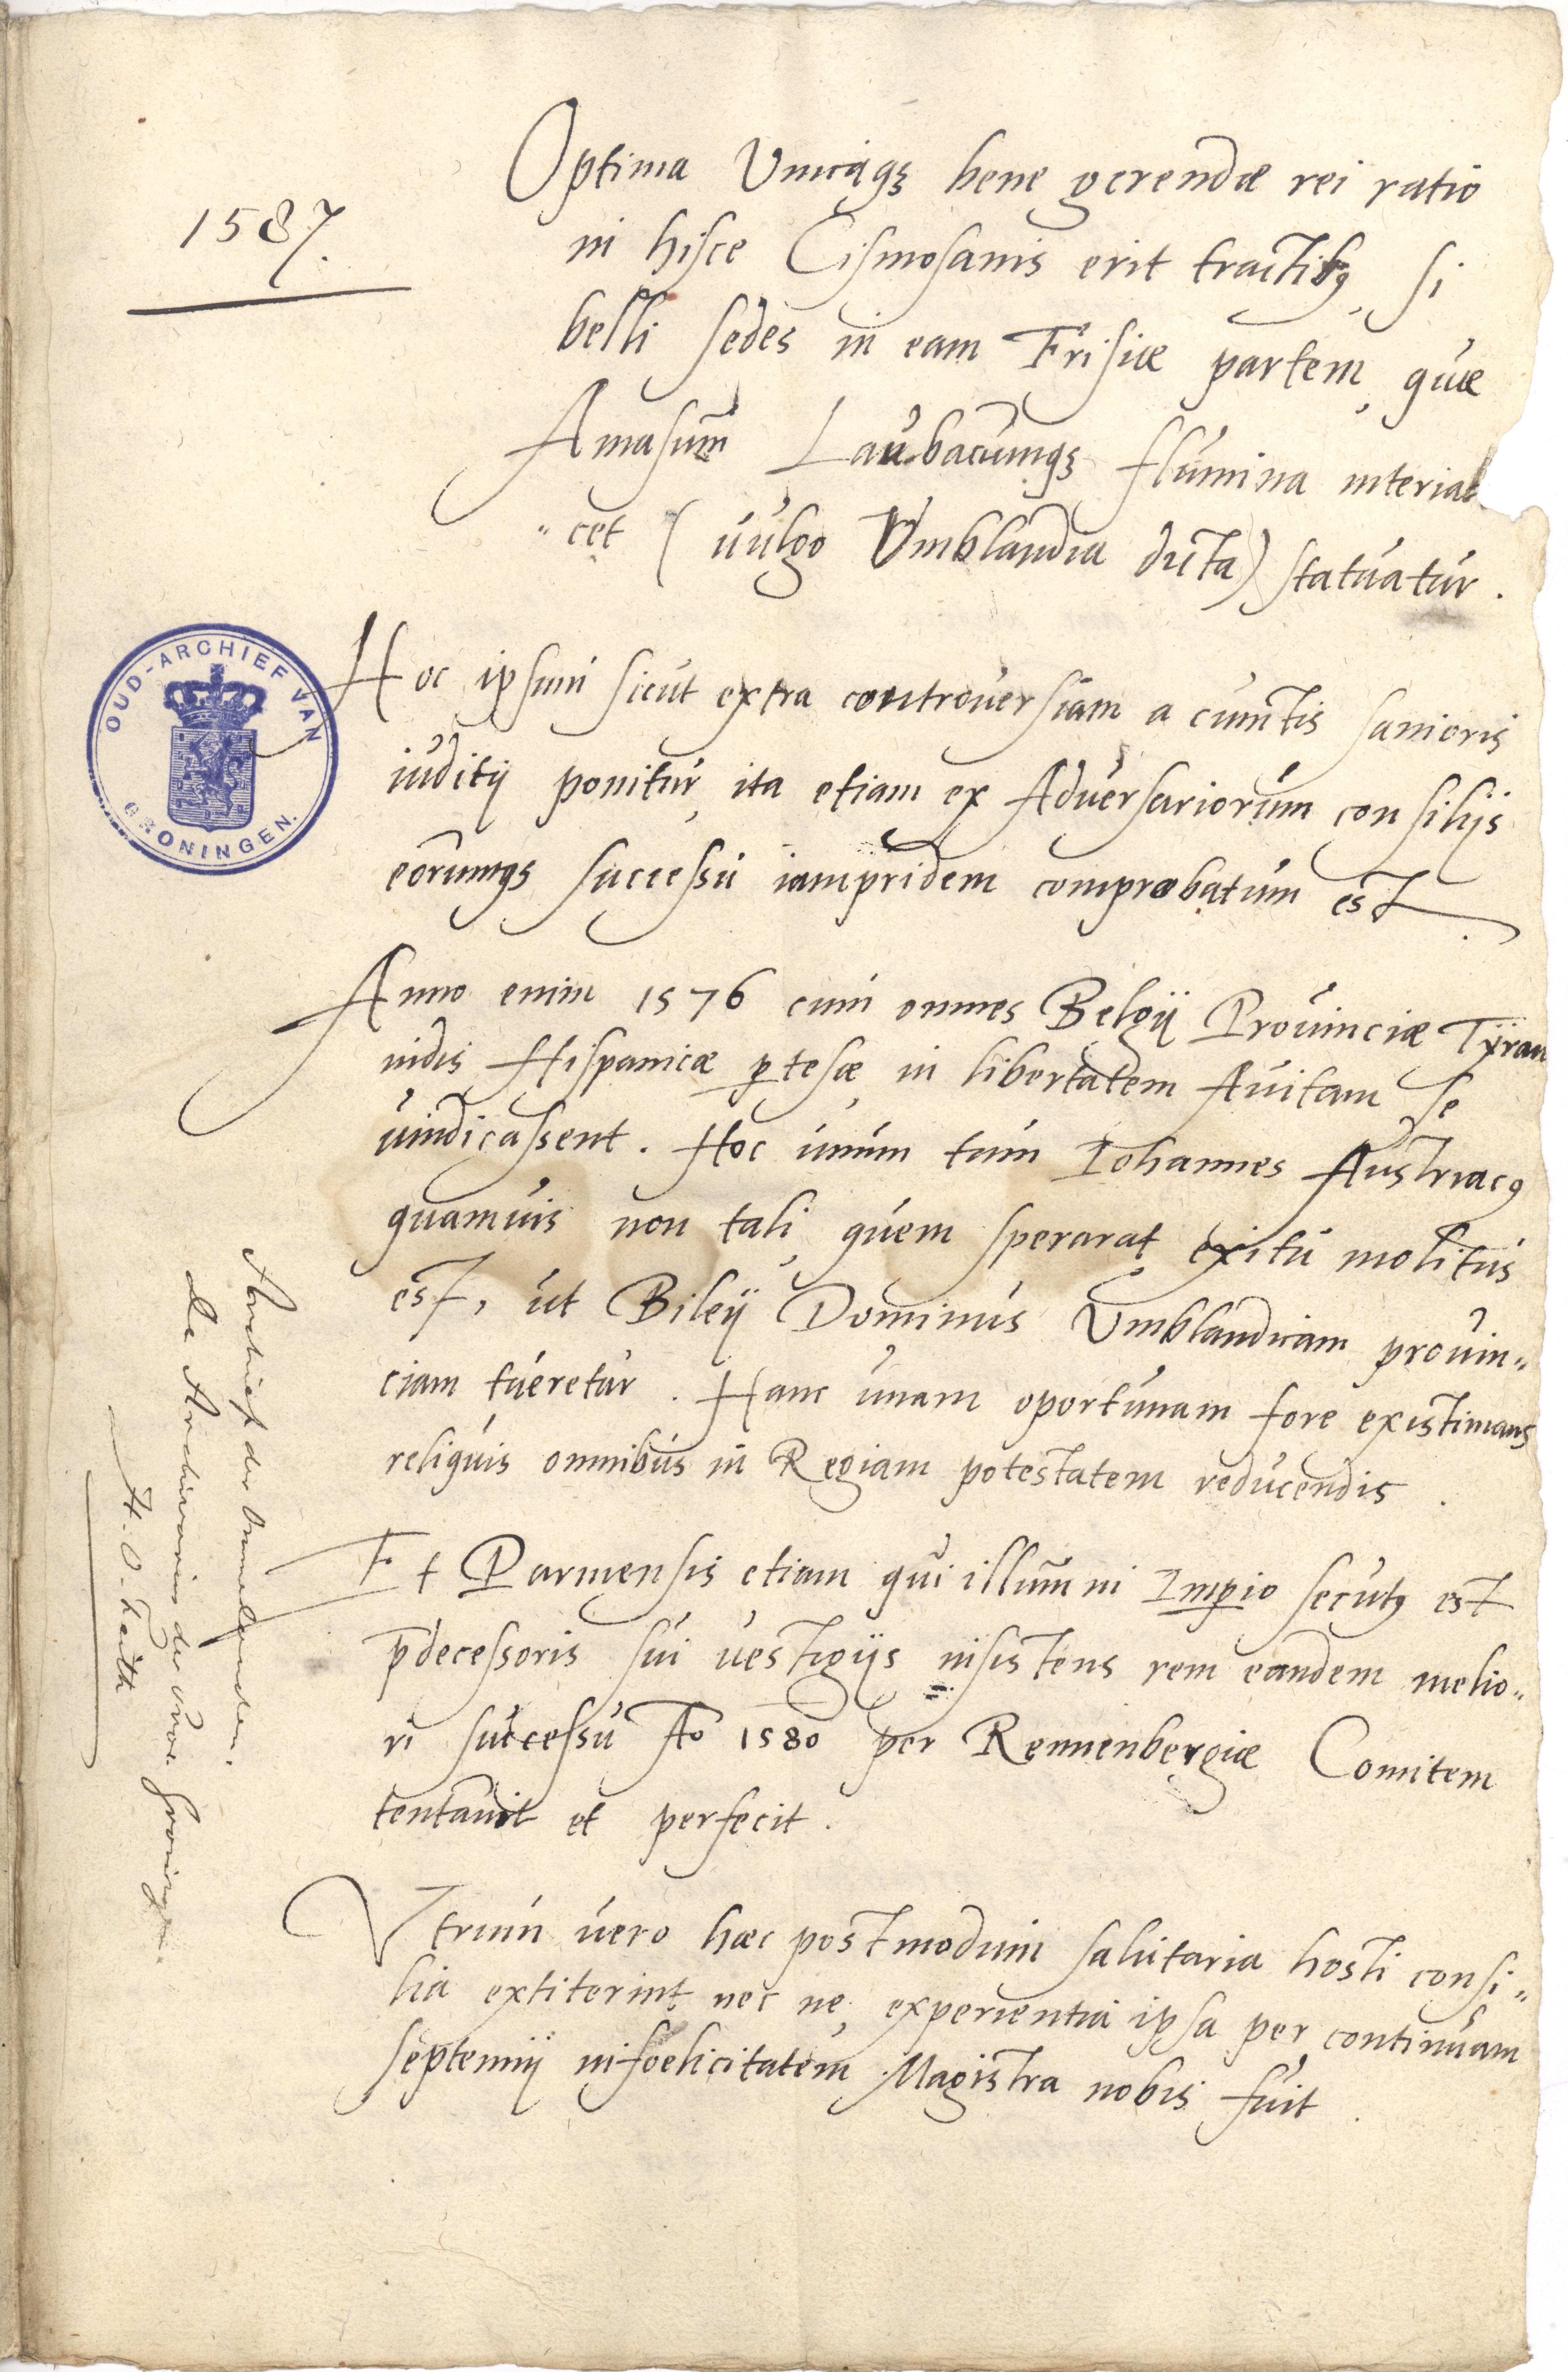 1587.
Optima Unicaq3 bene gerendæ rei ratio
in hisce Cismosanis erit tractib9, si
belli sedes in eam Frisiæ partem, quæ
Amasum Laubacumq3 flumina interiac
"cet (vulgo Umblandia dicta) statuatur.
OUD-ARCHIEF VAN GRONINGEN.
Hoc ipsum sicut extra controuersiam a cunctis sanioris
iuditij ponitur, ita etiam ex Aduersariorum consilijs
eorumq3 successu iampridem comprobatum est.
Anno enim 1576 cum omnes Belgij Prouinciæ Tÿran
nidis Hispanicæ ptesæ, in libertatem Auitam se
uindicassent. Hoc unum tum Iohannes Austriac9
quamuis non tali, quem sperarat exitu molitus
est, ut Bileÿ Dominus Umblandicam prouin„
ciam tueretur. Hanc unam oportunam fore existimans
reliquis omnibus in Regiam potestatem reducendis.
Et Parmensis etiam qui illum in Impio secut9 est
p̄decessoris sui uestigijs insistens rem eandem melio„
ri successu Ao 1580 per Rennenbergiæ Comitem
tentauit et perfecit.
Utrum uero hæc postmodum salutaria hosti consi„
lia extiterint nec ne, experientia ipsa per continuam
septennij infoelicitatem Magistra nobis fuit.
Archief der Ommelanden.
de Archivarius der Prov. Groningen.
H. O. Feith